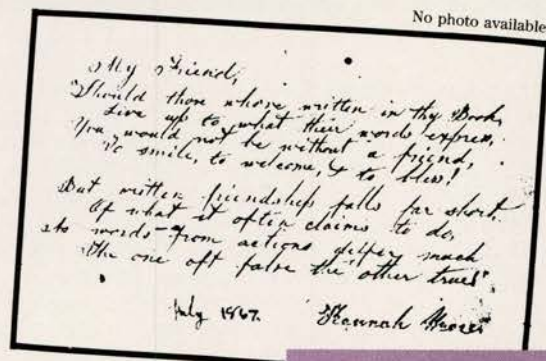 No photo available
My Friend,
"Should those whose written in thy Book,
Live up to what their words express,
You would not be without a friend,
To smile, to welcome, & to bless!
But written friendship falls far short
Of what it often claims to do,
As words from actions differ much
The one oft false the other true".
July 1867. Hannah